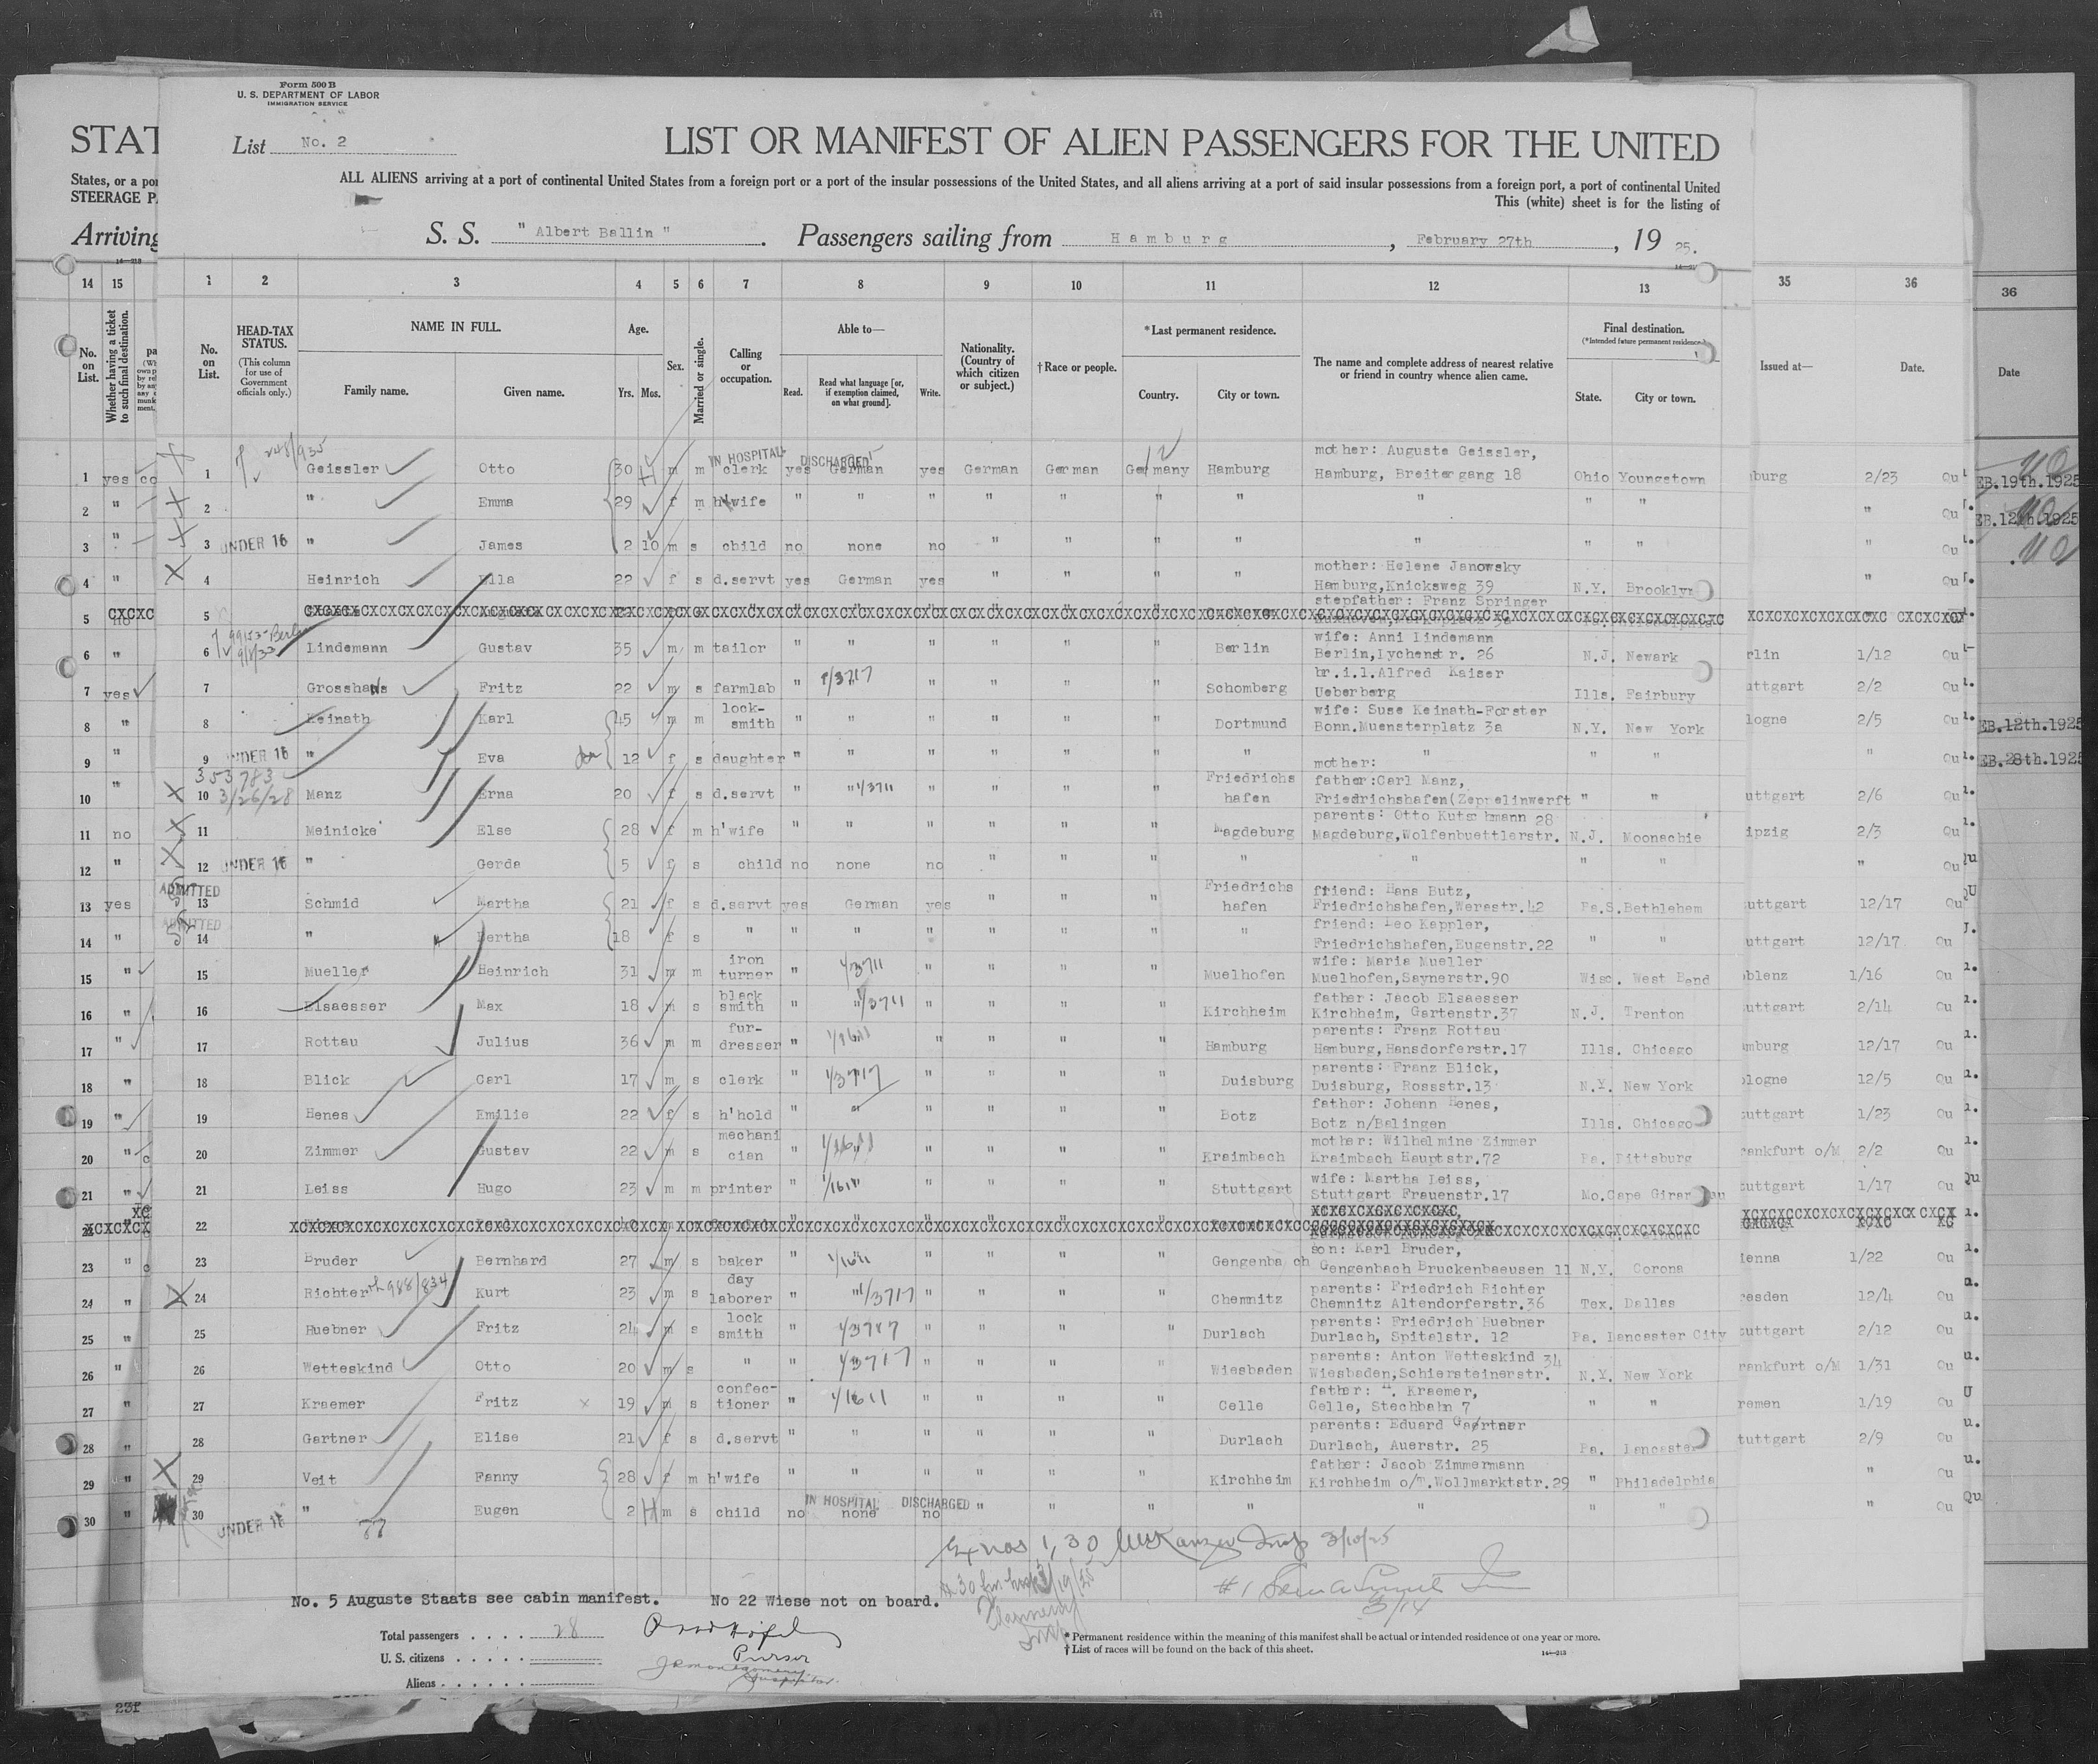 Form 500 B
U. S. DEPARTMENT OF LABOR
IMMIGRATION SERVICE
List No. 2
LIST OR MANIFEST OF ALIEN PASSENGERS FOR THE UNITED
STAT
ALL ALIENS arriving at a port of continental United States from a foreign port or a port of the insular possessions of the United States, and all aliens arriving at a port of said insular possessions from a foreign port, a port of continental United
States, or a por
STEERAGE P.
This (white) sheet is for the listing of
Arriving
S. S. " Albert Ballin " . Passengers sailing from Hamburg , February 27th , 19 25.
14 15 1 2 3 4 5 6 7 8 9 10 11 12 13 35 36 36
No. on List.
Whether having a ticket to such final destination.
No. on List.
HEAD-TAX STATUS.
(This column for use of Government officials only.)
NAME IN FULL.
Family name. Given name.
Age.
Yrs. Mos.
Sex.
Married or single.
Calling or occupation.
Able to—
Read. Read what language [or, if exemption claimed, on what ground]. Write.
Nationality. (Country of which citizen or subject.)
†Race or people.
*Last permanent residence.
Country. City or town.
The name and complete address of nearest relative or friend in country whence alien came.
Final destination.
(*Intended future permanent residence.)
State. City or town.
Issued at— Date. Date
mother: Auguste Geissler,
1 yes 1 Geissler Otto 30 m m clerk yes German yes German German Germany Hamburg Hamburg, Breitergang 18 Ohio Youngstown burg 2/23 Qu EB.19th.1925
IN HOSPITAL DISCHARGED
2 " 2 " Emma 29 f m h'wife " " " " " " " " " " " Qu EB.12th.1925
3 " 3 UNDER 16 " James 2 10 m s child no none no " " " " " " " " Qu
mother: Helene Janowsky
4 " 4 Heinrich Ella 22 f s d.servt yes German yes " " " " Hamburg,Knicksweg 39 N.Y. Brooklyn " Qu
stepfather: Franz Springer
5 no 5
wife: Anni Lindemann
6 " 6 Lindemann Gustav 35 m m tailor " " " " " " Berlin Berlin,Lychenstr. 26 N.J. Newark rlin 1/12 Qu
br.i.l.Alfred Kaiser
7 yes 7 Grosshans Fritz 22 m s farmlab " " " " " Schomberg Ueberberg Ills. Fairbury uttgart 2/2 Qu
wife: Suse Keinath-Forster
8 " 8 Keinath Karl 45 m m lock-smith " " " " " " Dortmund Bonn.Muensterplatz 3a N.Y. New York logne 2/5 Qu EB.12th.1925
9 " 9 UNDER 16 " Eva 12 f s daughter " " " " " " " " " " " Qu EB.28th.1925
mother:
353783
3/26/28
father:Carl Manz,
10 " 10 Manz Erna 20 f s d.servt " " " " " " Friedrichs hafen Friedrichshafen(Zeppelinwerft " " uttgart 2/6 Qu
parents: Otto Kutschmann 28
11 no 11 Meinicke Else 28 f m h'wife " " " " " " Magdeburg Magdeburg,Wolfenbuettlerstr. N.J. Moonachie ipzig 2/3 Qu
12 " 12 UNDER 16 " Gerda 5 f s child no none no " " " " " " " " Qu
ADMITTED
friend: Hans Butz,
13 yes 13 Schmid Martha 21 f s d.servt yes German yes " " " Friedrichs hafen Friedrichshafen,Werastr.42 Pa.S.Bethlehem uttgart 12/17 Qu
ADMITTED
friend: Leo Kappler,
14 " 14 " Bertha 18 f s " " " " " " " " Friedrichshafen,Eugenstr.22 " " uttgart 12/17 Qu
wife: Maria Mueller
15 " 15 Mueller Heinrich 31 m m iron turner " " " " " Muelhofen Muelhofen,Saynerstr.90 Wisc. West Bend blenz 1/16 Qu
father: Jacob Elsaesser
16 " 16 Elsaesser Max 18 m s black smith " " " " " " Kirchheim Kirchheim, Gartenstr.37 N.J. Trenton uttgart 2/14 Qu
parents: Franz Rottau
17 " 17 Rottau Julius 36 m m fur-dresser " " " " " Hamburg Hamburg,Hansdorferstr.17 Ills. Chicago mburg 12/17 Qu
parents: Franz Blick,
18 " 18 Blick Carl 17 m s clerk " " " " " Duisburg Duisburg, Rossstr.13 N.Y. New York ologne 12/5 Qu
father: Johann Henes,
19 " 19 Henes Emilie 22 f s h'hold " " " " " " Botz Botz n/Balingen Ills. Chicago tuttgart 1/23 Qu
mother: Wilhelmine Zimmer
20 " 20 Zimmer Gustav 22 m s mechani cian " " " " " Kraimbach Kraimbach Hauptstr.72 Pa. Pittsburg rankfurt o/M 2/2 Qu
wife: Martha Leiss,
21 " 21 Leiss Hugo 23 m m printer " " " " " Stuttgart Stuttgart Frauenstr.17 Mo.Cape Girar tuttgart 1/17 Qu
22 22
son: Karl Bruder,
23 " 23 Bruder Bernhard 27 m s baker " " " " " Gengenbach Gengenbach Bruckenhaeusen 11 N.Y. Corona ienna 1/22 Qu
parents: Friedrich Richter
24 " 24 Richter 988/834 Kurt 23 m s day laborer " " " " " " Chemnitz Chemnitz Altendorferstr.36 Tex. Dallas resden 12/4 Qu
parents: Friedrich Huebner
25 " 25 Huebner Fritz 24 m s lock smith " " " " " Durlach Durlach, Spitalstr. 12 Pa. Lancaster City tuttgart 2/12 Qu
parents: Anton Wetteskind 34
26 " 26 Wetteskind Otto 20 m s " " " " " " " Wiesbaden Wiesbaden,Schiersteinerstr. N.Y. New York rankfurt o/M 1/31 Qu
father: H. Kraemer,
27 " 27 Kraemer Fritz 19 m s confec-tioner " " " " " Celle Celle, Stechbahn 7 " " remen 1/19 Qu
parents: Eduard Gaertner
28 " 28 Gartner Elise 21 f s d.servt " " " " " " Durlach Durlach, Auerstr. 25 Pa. Lancaster tuttgart 2/9 Qu
father: Jacob Zimmermann
29 " 29 Veit Fanny 28 f m h'wife " " " " " " Kirchheim Kirchheim o/T.Wollmarktstr.29 " Philadelphia " Qu
IN HOSPITAL DISCHARGED
30 " 30 UNDER 16 " Eugen 2 m s child no none no " " " " " " " " Qu
3/10/25
3/14
No. 5 Auguste Staats see cabin manifest. No 22 Wiese not on board.
Total passengers . . . . 28
U. S. citizens . . . . . .
Aliens . . . . . . .
Purser
Inspector
* Permanent residence within the meaning of this manifest shall be actual or intended residence of one year or more.
† List of races will be found on the back of this sheet.
14—213